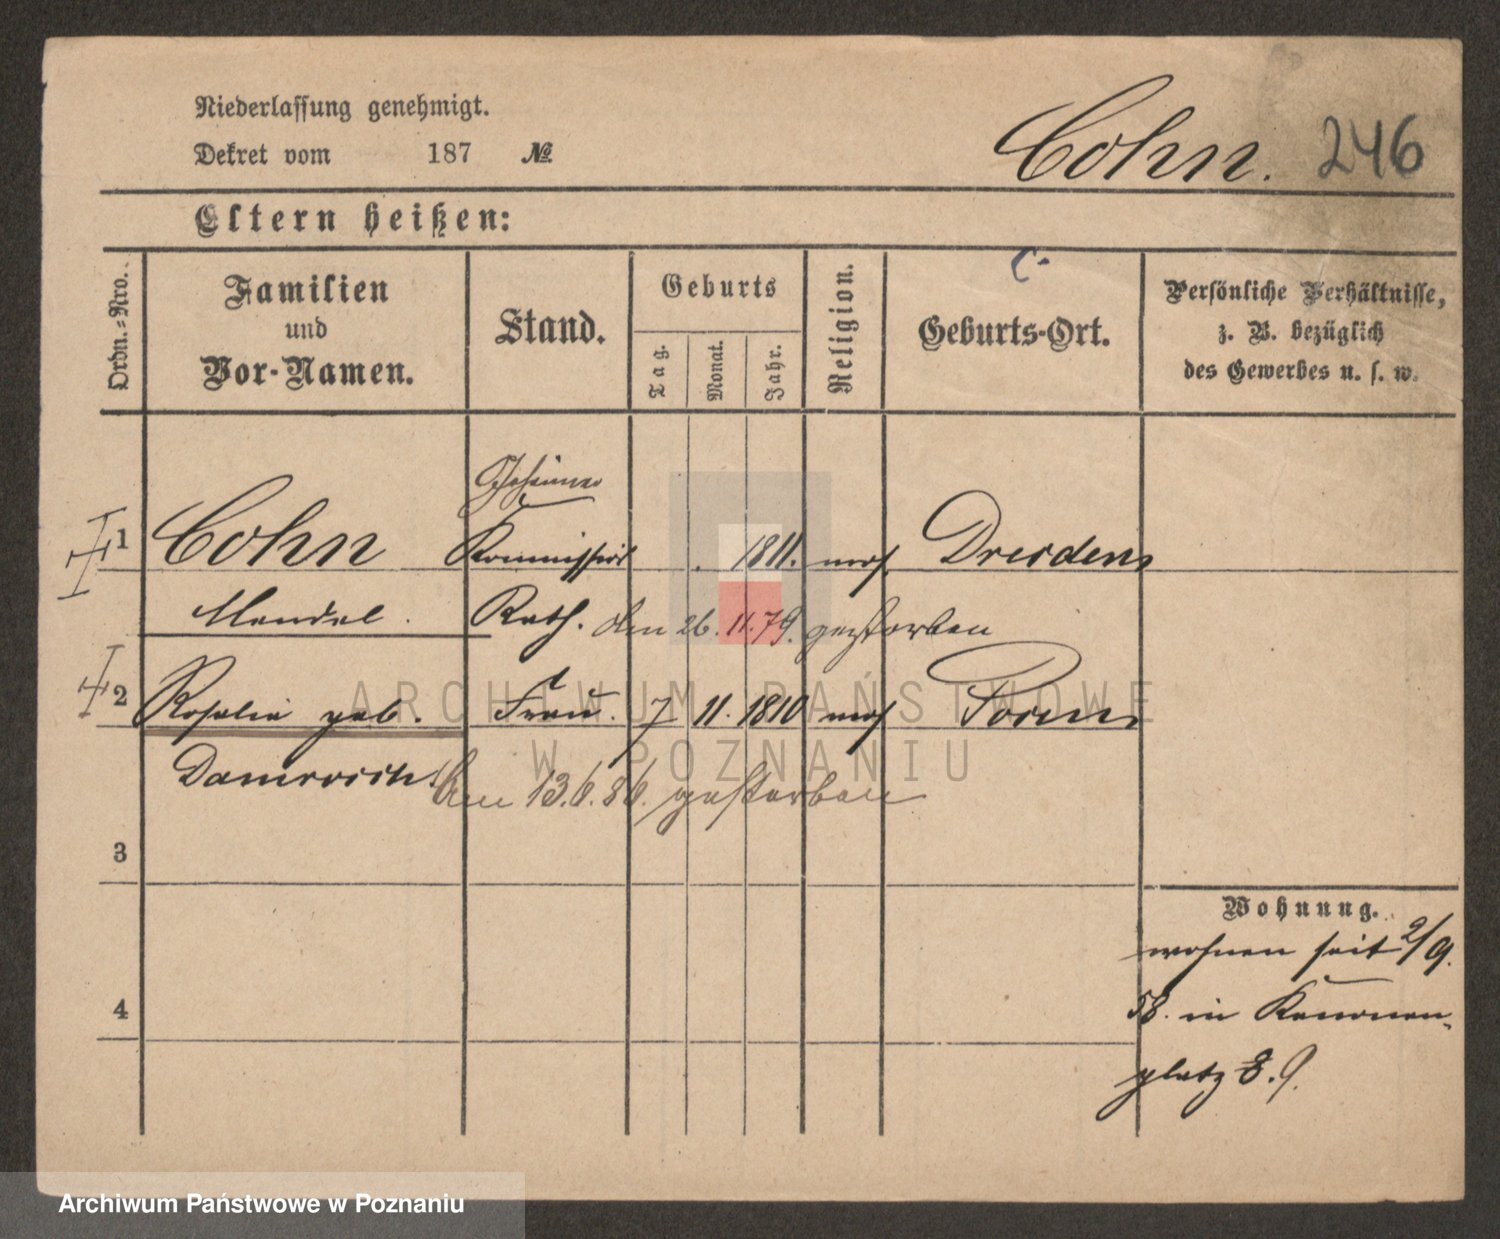 Niederlassung genehmigt.
Dekret vom 187 №
Cohn. 246
Eltern heißen:
Ordn.-Nro.
Familien
und
Vor-Namen.
Stand.
Geburts
Tag.
Monat.
Jahr.
Religion.
Geburts-Ort.
Persönliche Verhältnisse,
z. B. bezüglich
des Gewerbes u. s. w.
Geheimer
1 Cohn Kommissions 1811. mos. Dresden
Mendel. Rath. den 26. 11. 79. gestorben
2 Rosalie geb. Frau. 7 11. 1810 mos Posen
den 13. 6. 86. gestorben
3
4
Wohnung.
wohnen seit 2/9.
58. in Kanonen-
platz 8. 9.
ARCHIWUM PAŃSTWOWE
W POZNANIU
Archiwum Państwowe w Poznaniu